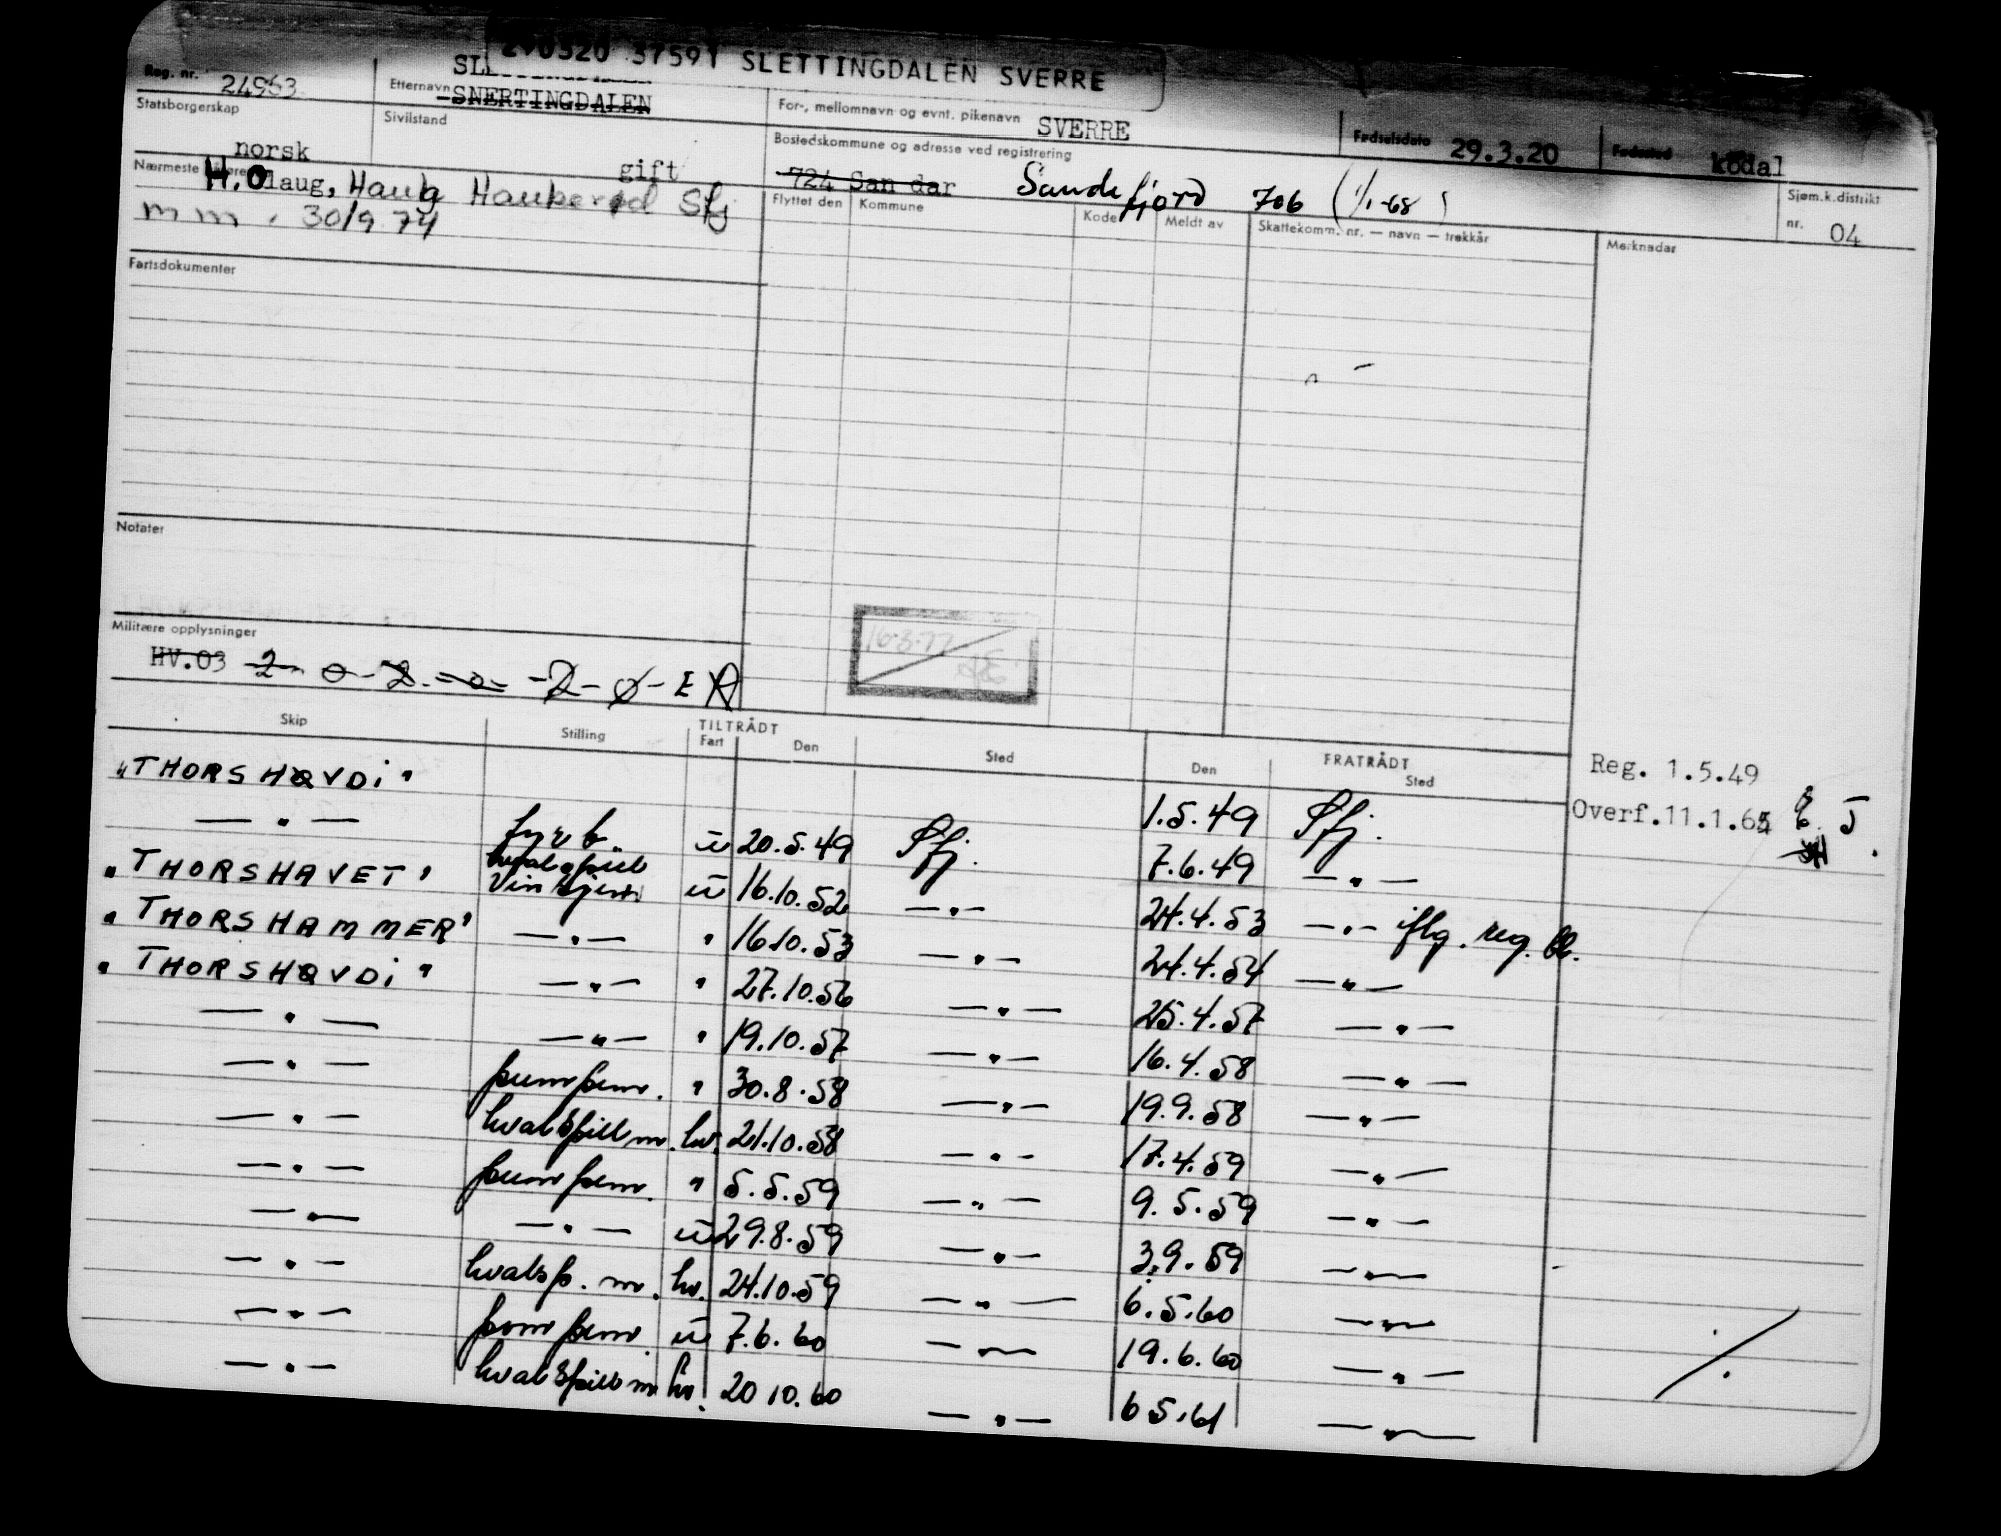 290320 37591 SLETTINGDALEN SVERRE
Reg. nr. 24963 Etternavn SNERTINGDALEN For-, mellomnavn og evnt. pikenavn SVERRE Fødselsdato 29.3.20 Fødested kodal
Statsborgerskap norsk Sivilstand gift Bostedskommune og adresse ved registrering 724 San dar Sandefjord 706 (1/1-68) Sjøm.k.distrikt nr. 04
Nærmeste H. Olaug, Haug Haukerød Sfj
mm. 30/9 74
Flyttet den Kommune Kode Meldt av Skattekomm. nr. — navn — trekkår Merknader
Fartsdokumenter
Notater
16.3.77
Militære opplysninger
HV.03 2 - 0 - 2
Skip Stilling TILTRÅDT Fart Den Sted FRATRÅDT Den Sted
"THORSHØVDI" 1.5.49 Sfj. Reg. 1.5.49
— " — fyrb. u 20.5.49 Sfj. 7.6.49 — " — Overf.11.1.65
"THORSHAVET" hvalspill Vinsjem. u 16.10.52 — " — 24.4.53 — " — iflg. reg. bl.
"THORSHAMMER" — " — " 16.10.53 — " — 24.4.54 — " —
"THORSHØVDI" — " — " 27.10.56 — " — 25.4.57 — " —
— " — — " — " 19.10.57 — " — 16.4.58 — " —
— " — pumpem. " 30.8.58 — " — 19.9.58 — " —
— " — hvalspillm. hv. 21.10.58 — " — 17.4.59 — " —
— " — pumpem. " 5.5.59 — " — 9.5.59 — " —
— " — — " — u 29.8.59 — " — 3.9.59 — " —
— " — hvalsp. m. hv. 24.10.59 — " — 6.5.60 — " —
— " — pumpem. u 7.6.60 — " — 19.6.60 — " —
— " — hvalspillm hv. 20 10.60 — " — 6 5.61 — " —